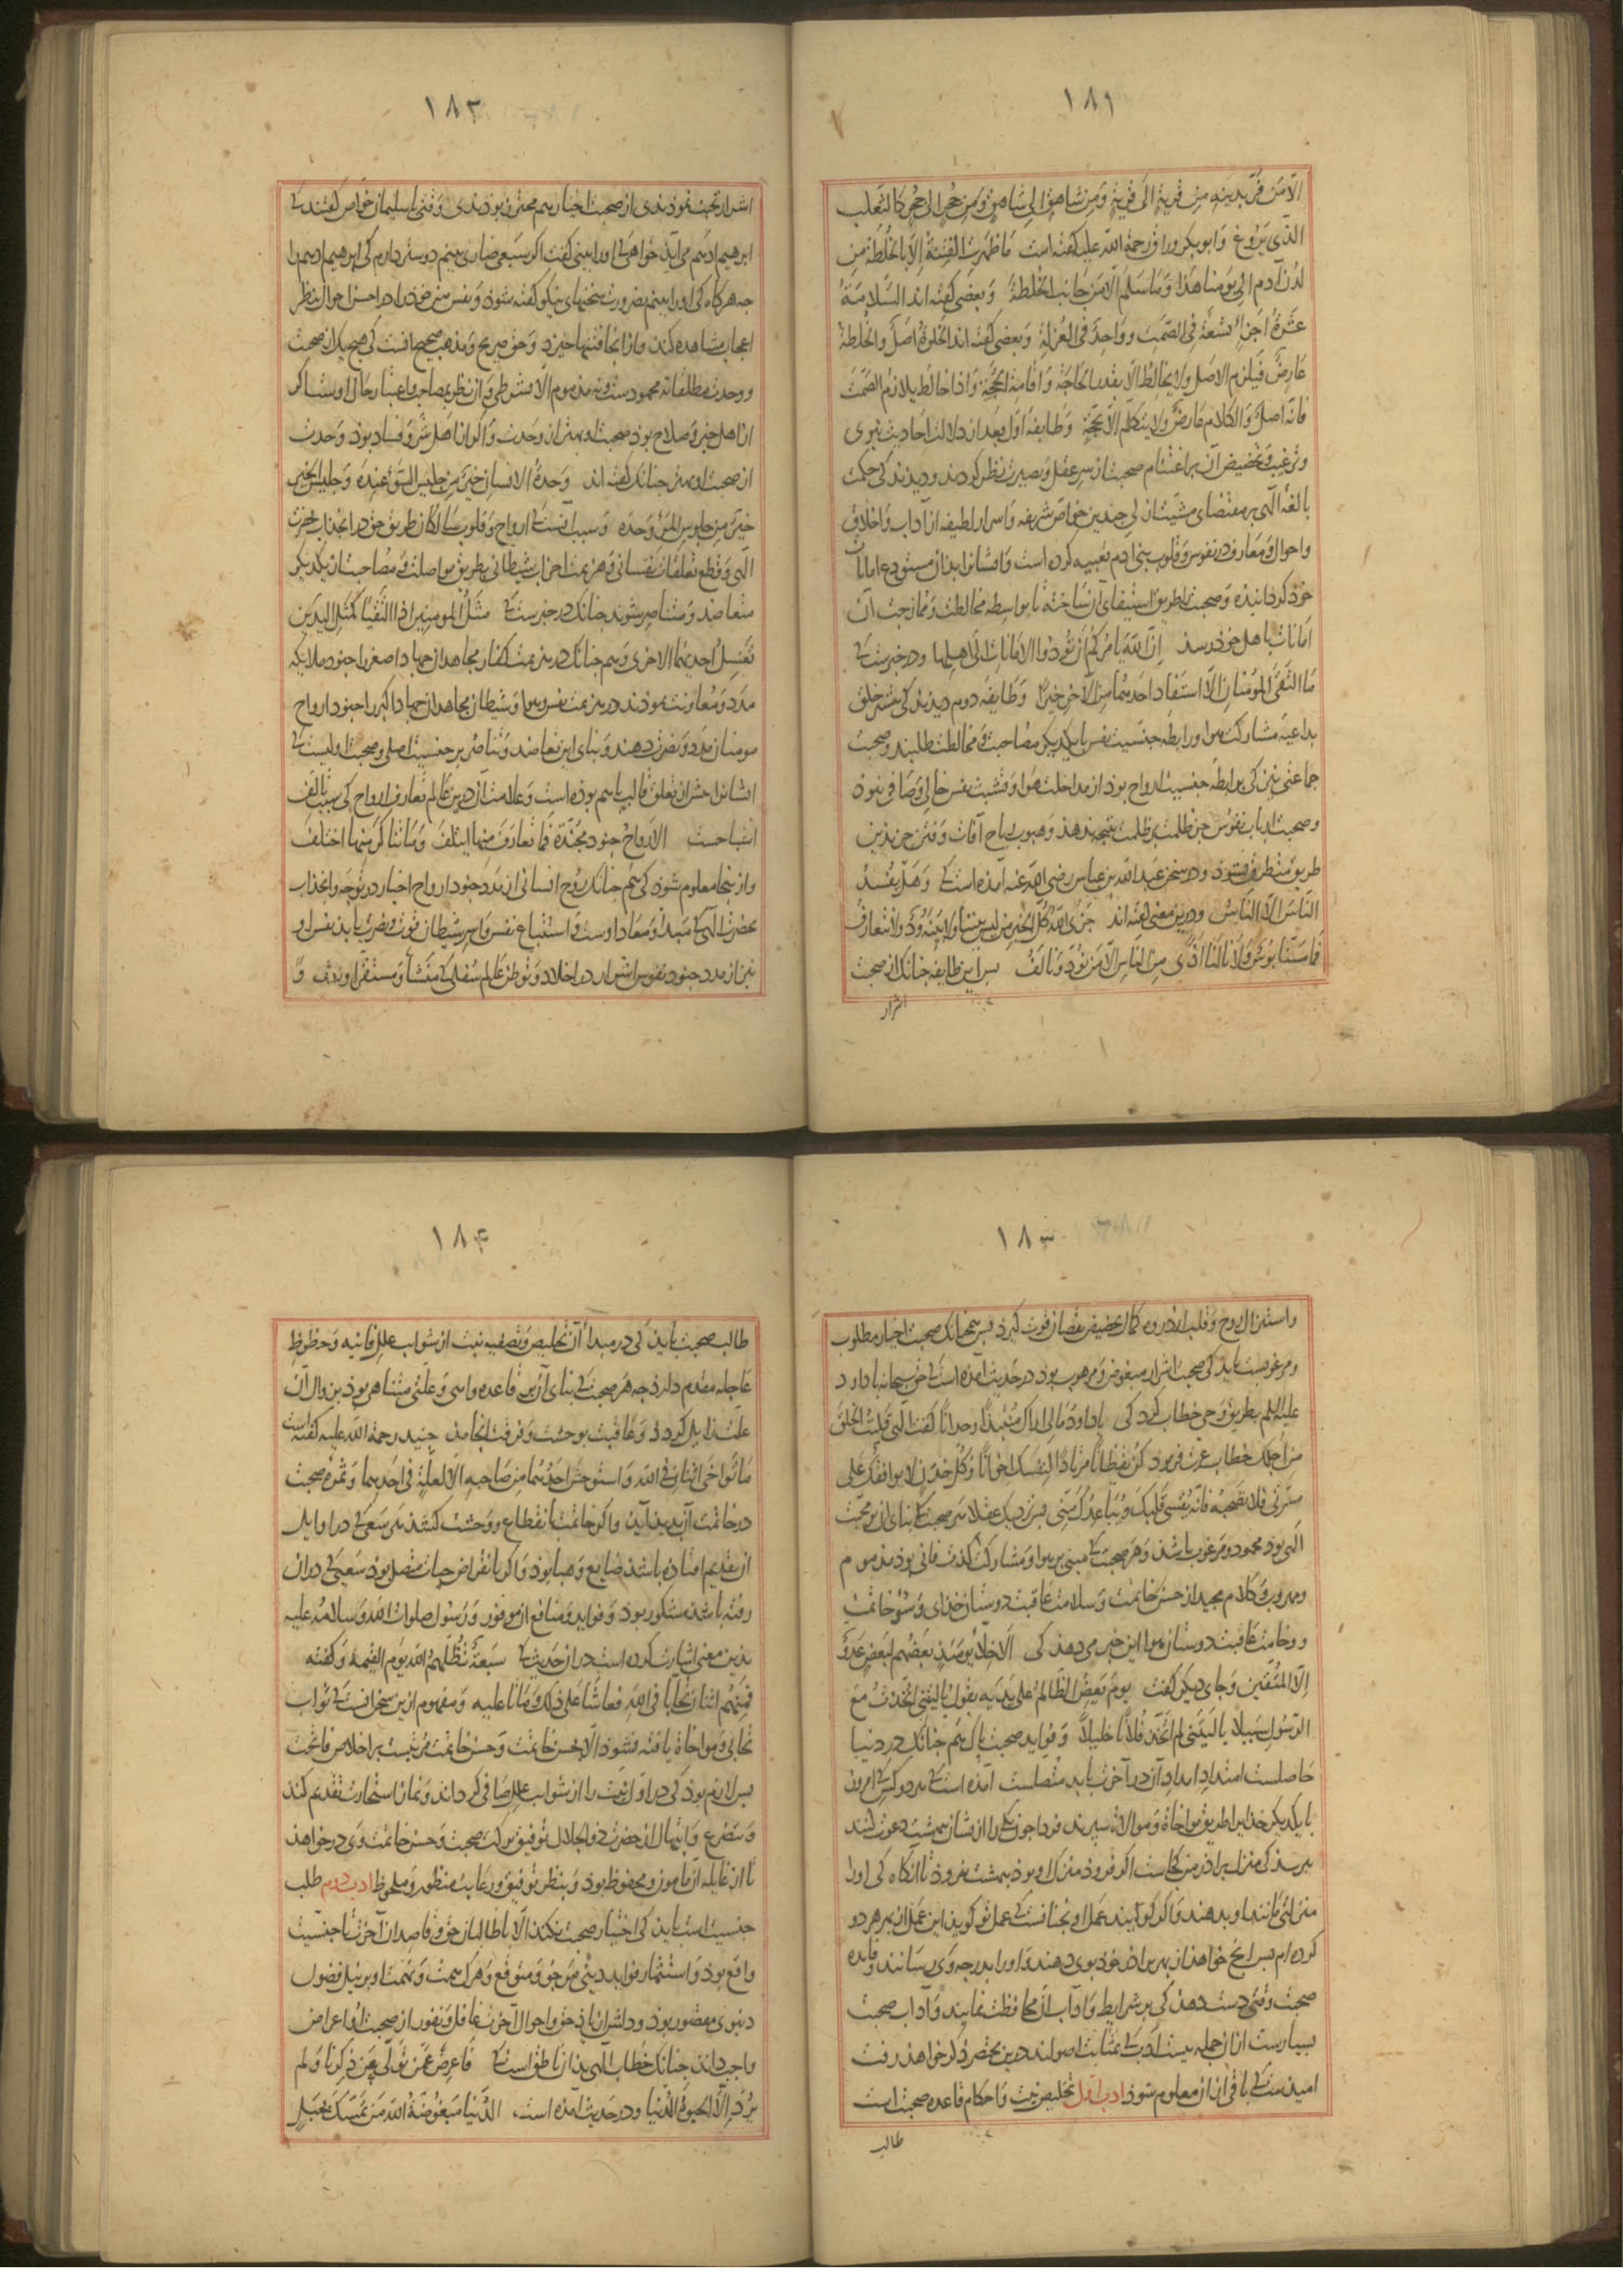 ۱۸۱
الا من فر بدینه من قریة الی قریة و من شاهق الی شاهق و من جحر الی جحر کالثعلب
الذی یروغ و ابوبکر وراق رحمة الله علیه گفته است ما ظهرت الفتنة الا بالخلطة من
لدن آدم الی یومنا هذا و ما سلم الا من جانب الخلطة و بعضی گفته اند السلامة
عشرة اجزاء تسعة فی الصمت و واحد فی العزلة و بعضی گفته اند الخلوة اصل و الخلطة
عارض فیلزم الاصل و لا یخالط الا بقدر الحاجة و اقامة الحجة و اذا خالط یلازم الصمت
فانه اصل و الکلام عارض و لا یتکلم الا بحجة و طایفه اول بعد از دلالت احادیث نبوی
و ترغیب و تخضیض آن بر اغتنام صحبت از سر عقل و بصیرت نظر کردند و دیدند کی حکمت
بالغه الهی بر مقتضای مشیت ازلی چندین خواص شریفه و اسرار لطیفه از آداب و اخلاق
و احوال و معارف در نفوس و قلوب بنی ادم تعبیه کرده است و ایشانرا بدان مستودع امانات
خوذ کردانیده و صحبت را طریق استیفای آن ساخته تا بواسطه مخالطت و ممازجت آن
امانات باهل خوذ رسذ ان الله یامرکم ان تؤدوا الامانات الی اهلها و در خبرست که
ما التقی المؤمنان الا استفاد احدهما من الآخر خیرا و طایفه دوم دیدند کی بیشتر خلق
بداعیه مشارکت هوا و رابطه جنسیت نفس با یکدیکر مصاحبت و مخالطت طلبند و صحبت
جماعتی بینی کی برابطه جنسیت ارواح بوذ از مداخلت هوا و تشبث نفس خالی و صافی نبوذ
و صحبت ارباب نفوس جز ظلمت بر ظلمت نتیجه ندهذ و هبوب ریاح آفات و فتن جز بذین
طریق منتظر نشوذ و در سخن عبد الله بن عباس رضی الله عنه آمذه است که و هل یفسد
الناس الا الناس و درین معنی گفته اند جزی الله کل الخیر من لیس بیننا و لا بینه ود و لا نتعارف
فما ستنا بؤس و لا نالنا اذی من الناس الا من نود و نالف پس این طایفه چنانک از صحبت
اشرار
۱۸۲
اشرار تجنب نموذندی از صحبت اخیار هم مجتنب بوذندی و قتی با سلیمان خواص گفتند که
ابرهیم ادهم می آید خواهی که او را بینی گفت اکر سبعی ضاری بینم دوستر دارم کی ابرهیم ادهم را
جه هر کاه کی او را بینم بضرورت سخنهای نیکو گفته شوذ و نفس من خوذ را در احسن احوال بنظر
اعجاب مشاهده کند و از انجا فتنها خیزد و حق صریح و مذهب صحیح آنست کی هیچ یک از صحبت
و وحدت مطلقا نه محمودست و نه مذموم الا بشرطی و از نظر بمصاحب و اعتبار حال او ست اکر
از اهل خیر و صلاح بوذ صحبت او بهتر از وحدت و اکر از اهل شر و فساد بوذ وحدت
از صحبت او بهتر چنانک گفته اند وحدة الانسان خیر من جلیس السوء عنده و جلیس الخیر
خیر من جلوس المرء وحده و سبب آنست که ارواح و قلوب سالکان طریق حق در انجذاب بحضرت
الهی و قطع تعلقات نفسانی و هزیمت احزاب شیطانی بطریق مواصلت و مصاحبت از یکدیکر
متعاضد و متناصر شوند چنانک در خبرست که مثل المومنین اذا التقیا کمثل الیدین
تغسل احدیهما الاخری و هم چنانک در هزیمت کفار مجاهدان جهاد اصغر را جنود ملایکه
مدد و معاونت نموذند در هزیمت نفس و هوا و شیطان مجاهدان جهاد اکبر را جنود ارواح
مومنان مدد و نصرت دهند و بنای این تعاضد و تناصر بر جنسیت اصلی و صحبت اولیست که
ایشانرا پیش از تعلق قالب باهم بوذه است و علامت آن درین عالم تعارف ارواح کی سبب تالف
اشباحست الارواح جنود مجندة فما تعارف منها ائتلف و ما تناکر منها اختلف
و ازینجا معلوم شوذ کی هم چنانک روح انسانی از مدد جنود ارواح اخیار در توجه و انجذاب
بحضرت الهی که مبدا و معاد اوست و استتباع نفس و اسر شیطان قوت و نصرت یابد نفس او
نیز از مدد جنود نفوس اشرار در اخلاد و توطن عالم سفلی که منشأ و مستقر اوست و
۱۸۳
و استنزال روح و قلب از ذروه کمال بحضیض نقصان قوت کیرد پس همچنانک صحبت اخیار مطلوب
و مرغوبست باید کی صحبت اشرار مبغوض و مرهوب بوذ در حدیث آمده است که حق سبحانه با داود
علیه السلم بطریق وحی خطاب کرد کی یا داود مالی اراک منتبذا وحدانا گفت الهی قلیت الخلق
من اجلک خطاب عزت فرموذ کن یقظانا مرتادا لنفسک اخوانا و کل خدن لا یوافقک علی
مسرتی فلا تصحبه فانه یقسی قلبک و یباعدک منی پس نزدیک عقلا هر صحبت که بنای آن بر محبت
الهی بوذ محمود و مرغوب باشد و هر صحبت که مبنی بر هوا و مشارکت لذت فانی بوذ مذموم
و مهروب و کلام مجید از حسن خاتمت و سلامت عاقبت دوستان خذای و سوء خاتمت
و وخامت عاقبت دوستان هوا این خبر می دهد کی الاخلاء یومئذ بعضهم لبعض عدو
الا المتقین و جای دیکر گفت یوم یعض الظالم علی یدیه یقول یا لیتنی اتخذت مع
الرسول سبیلا یا لیتنی لم اتخذ فلانا خلیلا و فواید صحبت پاک هم چنانک در دنیا
حاصلست امتداد امداد آن در آخرت باید متصلست آمذه است که هر دو کس که امروز
با یکدیکر خذایرا طریق مواخاة و موالات سپرند فردا جون یکی را از ایشان ببهشت دعوت کنند
بپرسد کی منزل براذر من کجاست اکر فروذ منزل او بوذ ببهشت نروذ تا انکاه کی او را
منزلتی مانند او بدهند و اکر کویند عمل او نه چنانست که عمل تو کوید این عمل از بهر هر دو
کرده ام پس انچ خواهذ از بهر براذر خوذ بوی دهند و او را بدرجه وی رسانند و فایده
صحبت وقتی دست دهذ کی بر شرایط و آداب آن محافظت نمایند و آداب صحبت
بسیارست از آن جمله بیست ادب که بمثابت اصولند درین مختصر ذکر خواهذ رفت
امیدست که باقی از آن معلوم شوذ ادب اول تخلیص نیت و احکام قاعده صحبت است
طالب
۱۸۴
طالب صحبت باید کی در مبدأ آن تخلیص و تصفیه نیت از شوایب علل فانیه و حظوظ
عاجله مقدم دارذ چه هر صحبت که بنای آن بر قاعده واهی و علتی متناهی بوذ بزوال آن
علت زایل کردد و عاقبت بوحشت و فرقت انجامد جنید رحمة الله علیه گفته است
ما تواخی اثنان فی الله و استوحش احدهما من صاحبه الا لعلة فی احدهما و ثمره صحبت
در خاتمت آن پدید آید و اکر خاتمت بانقطاع و وحشت کشد هر سعی که در اوایل
از تقدیم افتاده باشد ضایع و هبا بوذ و اکر بانقراض حیات متصل بوذ سعیی که در آن
رفته باشد مشکور بوذ و فواید و منافع آن موفور و رسول صلوات الله و سلامه علیه
بذین معنی اشارت کرده است در آن حدیث که سبعة یظلهم الله یوم القیمة و گفته
فمنهم اثنان تحابا فی الله فعاشا علی ذلک و ماتا علیه و مفهوم ازین سخن آنست که ثواب
تحاب و مواخاة یافته نشوذ الا بحسن خاتمت و حسن خاتمت مرتبست بر اخلاص فاتحت
پس لازم بوذ کی در اول نیت را از شوایب علل صافی کرداند و نماز استخارت تقدیم کند
و بتضرع و ابتهال از حضرت ذو الجلال توفیق برکت صحبت و حسن خاتمت وی درخواهذ
تا از غایله آن مامون و محفوظ بوذ و بنظر توفیق و رعایت منظور و ملحوظ ادب دوم طلب
جنسیت است باید کی اختیار صحبت نکند الا با طالبان حق و قاصدان آخرت تا جنسیت
واقع بوذ و استثمار فواید دینی مرجو و متوقع و هر ک همت و نهمت او بر نیل فضول
دنیوی مقصور بوذ و دلش از یاذ حق و احوال آخرت غافل و نفور از صحبت او اعراض
واجب داند چنانک خطاب الهی بذان ناطق است که فاعرض عمن تولی عن ذکرنا و لم
یرد الا الحیوة الدنیا و در حدیث آمده است الدنیا مبغوضة الله من تمسک بحبل